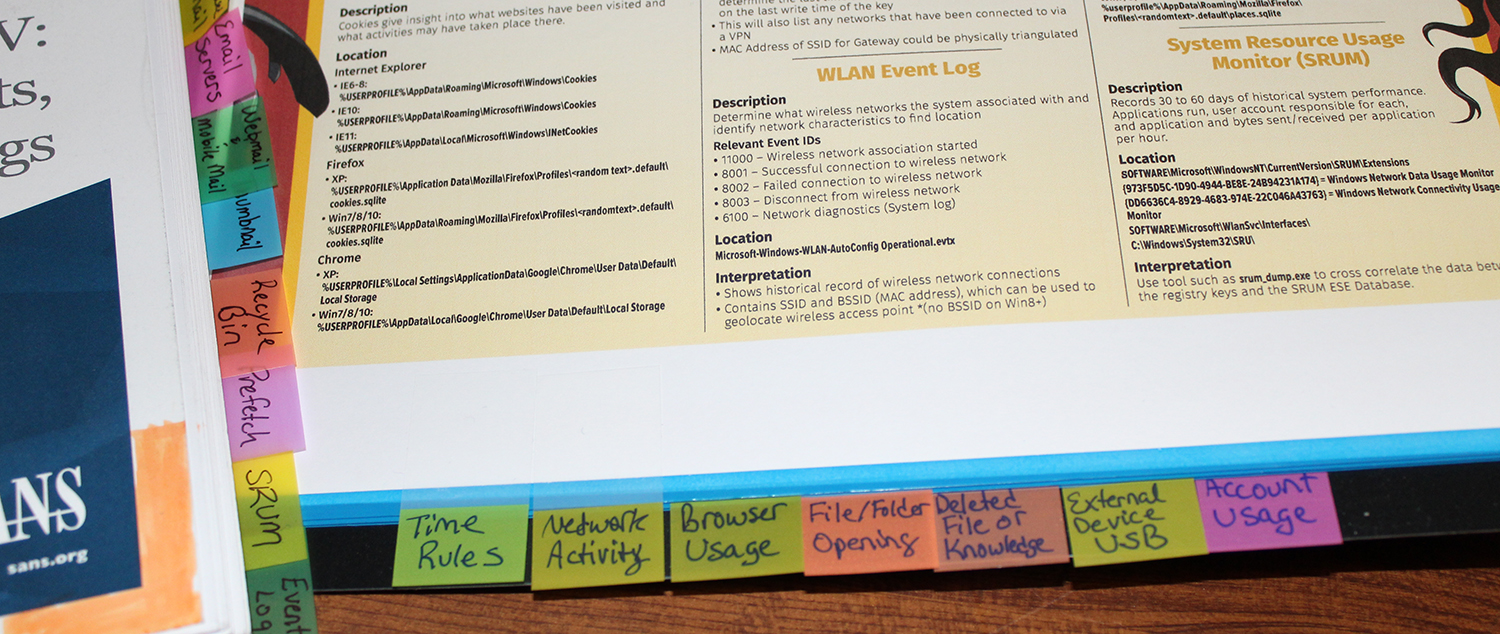 V:
ts,
gs
ANS
sans.org
Email
Servers
Webmail
&
Mobile Mail
umbnail
Recycle
Bin
Prefetch
SRUM
Event
Log
Description
Cookies give insight into what websites have been visited and
what activities may have taken place there.
Location
Internet Explorer
• IE6-8:
%USERPROFILE%\AppData\Roaming\Microsoft\Windows\Cookies
• IE10:
%USERPROFILE%\AppData\Roaming\Microsoft\Windows\Cookies
• IE11:
%USERPROFILE%\AppData\Local\Microsoft\Windows\INetCookies
Firefox
• XP:
%USERPROFILE%\Application Data\Mozilla\Firefox\Profiles\<random text>.default\
cookies.sqlite
• Win7/8/10:
%USERPROFILE%\AppData\Roaming\Mozilla\Firefox\Profiles\<randomtext>.default\
cookies.sqlite
Chrome
• XP:
%USERPROFILE%\Local Settings\ApplicationData\Google\Chrome\User Data\Default\
Local Storage
• Win7/8/10:
%USERPROFILE%\AppData\Local\Google\Chrome\User Data\Default\Local Storage
on the last write time of the key
• This will also list any networks that have been connected to via
a VPN
• MAC Address of SSID for Gateway could be physically triangulated
WLAN Event Log
Description
Determine what wireless networks the system associated with and
identify network characteristics to find location
Relevant Event IDs
• 11000 – Wireless network association started
• 8001 – Successful connection to wireless network
• 8002 – Failed connection to wireless network
• 8003 – Disconnect from wireless network
• 6100 – Network diagnostics (System log)
Location
Microsoft-Windows-WLAN-AutoConfig Operational.evtx
Interpretation
• Shows historical record of wireless network connections
• Contains SSID and BSSID (MAC address), which can be used to
geolocate wireless access point *(no BSSID on Win8+)
%userprofile%\AppData\Roaming\Mozilla\Firefox\
Profiles\<randomtext>.default\places.sqlite
System Resource Usage
Monitor (SRUM)
Description
Records 30 to 60 days of historical system performance.
Applications run, user account responsible for each,
and application and bytes sent/received per application
per hour.
Location
SOFTWARE\Microsoft\WindowsNT\CurrentVersion\SRUM\Extensions
{973F5D5C-1D90-4944-BE8E-24B94231A174} = Windows Network Data Usage Monitor
{DD6636C4-8929-4683-974E-22C046A43763} = Windows Network Connectivity Usage
Monitor
SOFTWARE\Microsoft\WlanSvc\Interfaces\
C:\Windows\System32\SRU\
Interpretation
Use tool such as srum_dump.exe to cross correlate the data betw
the registry keys and the SRUM ESE Database.
Time
Rules
Network
Activity
Browser
Usage
File/Folder
Opening
Deleted
File or
Knowledge
External
Device
USB
Account
Usage